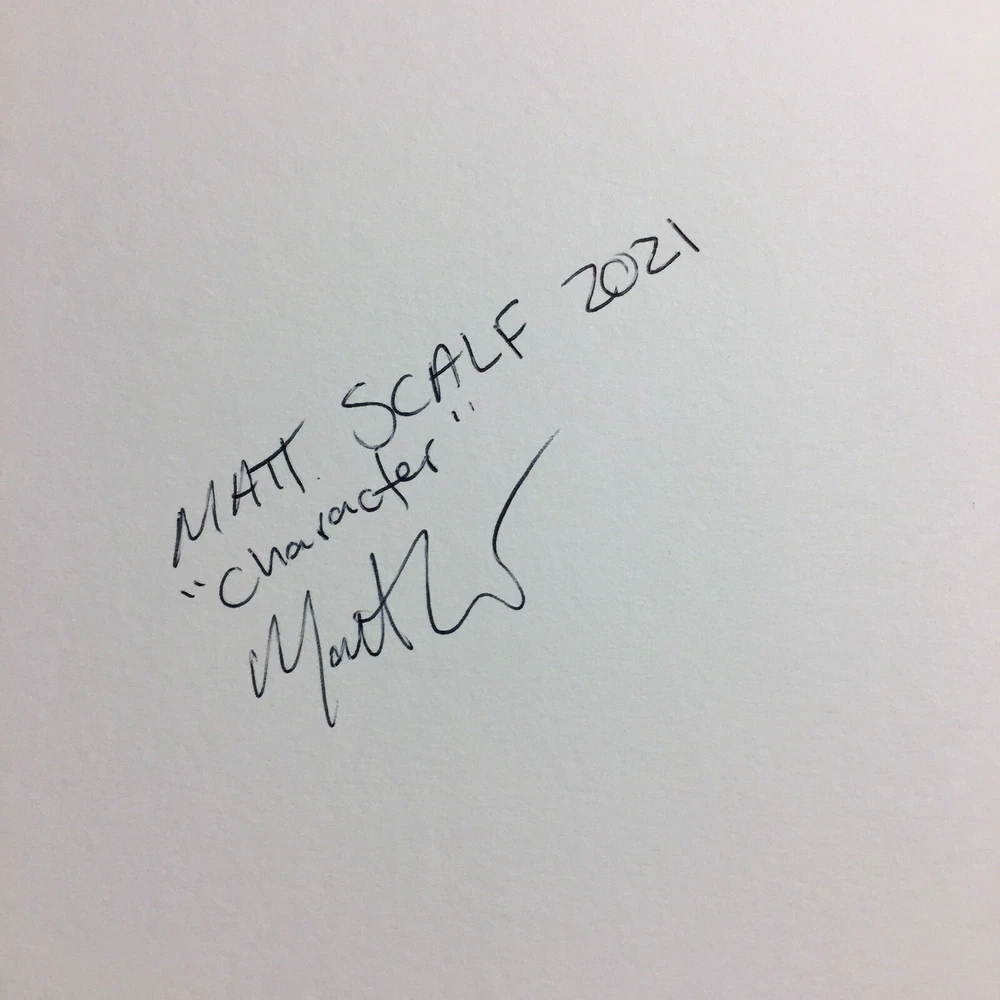 MATT SCALF 2021
"Character"
Matt